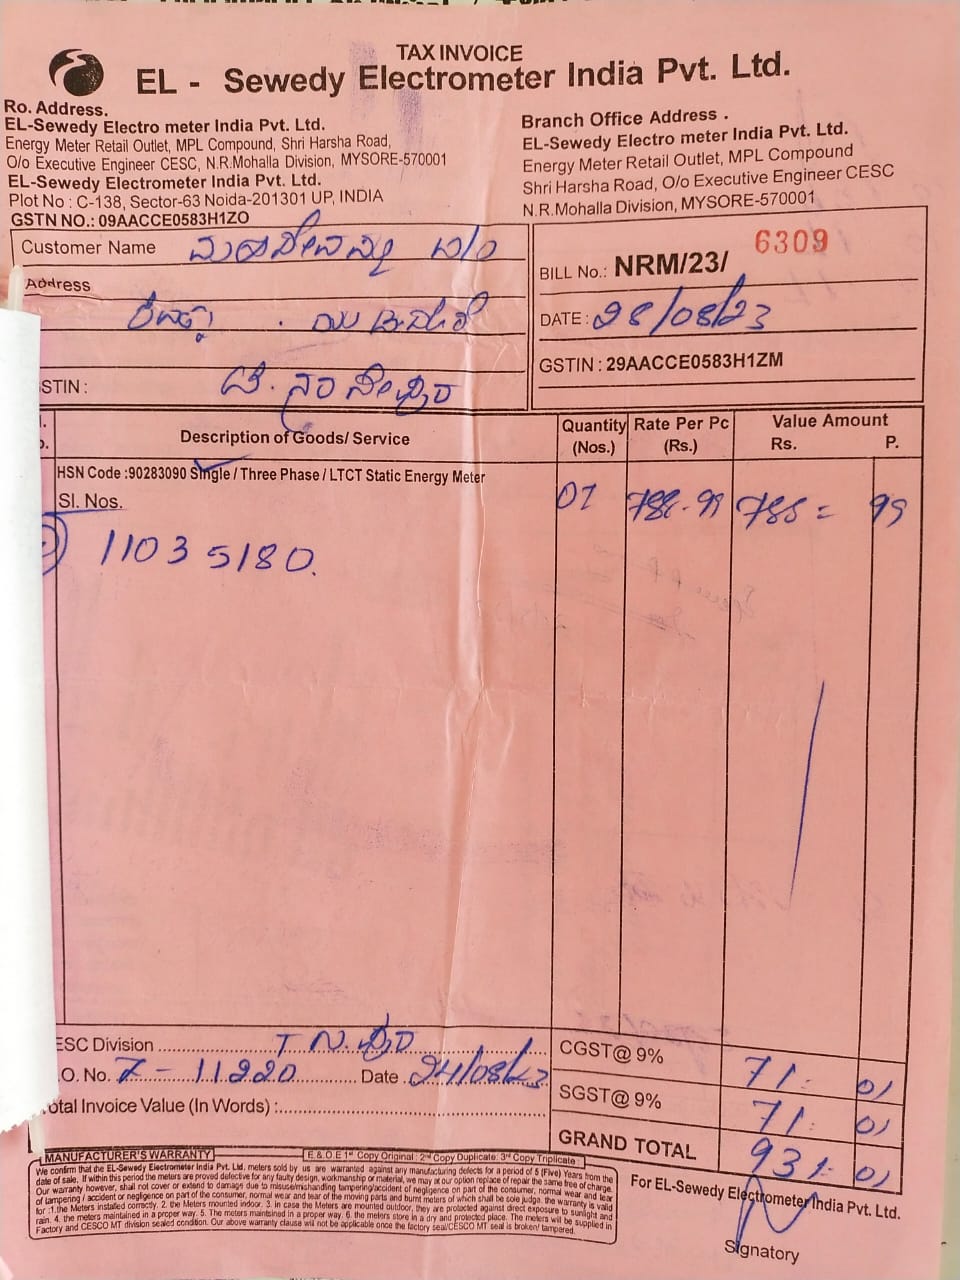 TAX INVOICE
EL - Sewedy Electrometer India Pvt. Ltd.
Ro. Address.
EL-Sewedy Electro meter India Pvt. Ltd.
Energy Meter Retail Outlet, MPL Compound, Shri Harsha Road,
O/o Executive Engineer CESC, N.R.Mohalla Division, MYSORE-570001
EL-Sewedy Electrometer India Pvt. Ltd.
Plot No : C-138, Sector-63 Noida-201301 UP, INDIA
GSTN NO.: 09AACCE0583H1ZO
Branch Office Address .
EL-Sewedy Electro meter India Pvt. Ltd.
Energy Meter Retail Outlet, MPL Compound
Shri Harsha Road, O/o Executive Engineer CESC
N.R.Mohalla Division, MYSORE-570001
Customer Name
Address
STIN :
BILL No.: NRM/23/ 6309
DATE : 28/08/23
GSTIN : 29AACCE0583H1ZM
Description of Goods/ Service
Quantity (Nos.)
Rate Per Pc (Rs.)
Value Amount
Rs. P.
HSN Code :90283090 Single / Three Phase / LTCT Static Energy Meter
Sl. Nos.
11035180.
01 788.99 788= 99
ESC Division
.O. No. 7-11220 Date 24/08/23
otal Invoice Value (In Words) :
CGST@ 9% 71: 01
SGST@ 9% 71: 01
GRAND TOTAL 931: 01
MANUFACTURER'S WARRANTY
E.& O.E 1st Copy Original : 2nd Copy Duplicate: 3rd Copy Triplicate :
We confirm that the EL-Sewedy Electrometer India Pvt. Ltd. meters sold by us are warranted against any manufacturing defects for a period of 5 (Five) Years from the
date of sale. If within this period the meters are proved defective for any faulty design, workmanship or material, we may at our option replace of repair the same free of charge.
Our warranty however, shall not cover or extend to damage due to misuse/mishandling tampering/accident of negligence on part of the consumer, normal wear and tear
of tampering / accident or negligence on part of the consumer, normal wear and tear of the moving parts and burnt meters of which shall be sole judge. the warranty is valid
for :1.the Meters installed correctly. 2. the Meters mounted indoor. 3. In case the Meters are mounted outdoor, they are protected against direct exposure to sunlight and
rain. 4. the meters maintained in a proper way. 5. The meters maintsined in a proper way. 6. the meters store in a dry and protected place. The meters will be supplied in
Factory and CESCO MT division sealed condition. Our above warranty clause will not be applicable once the factory seal/CESCO MT seal is broken/ tampered.
For EL-Sewedy Electrometer India Pvt. Ltd.
Signatory